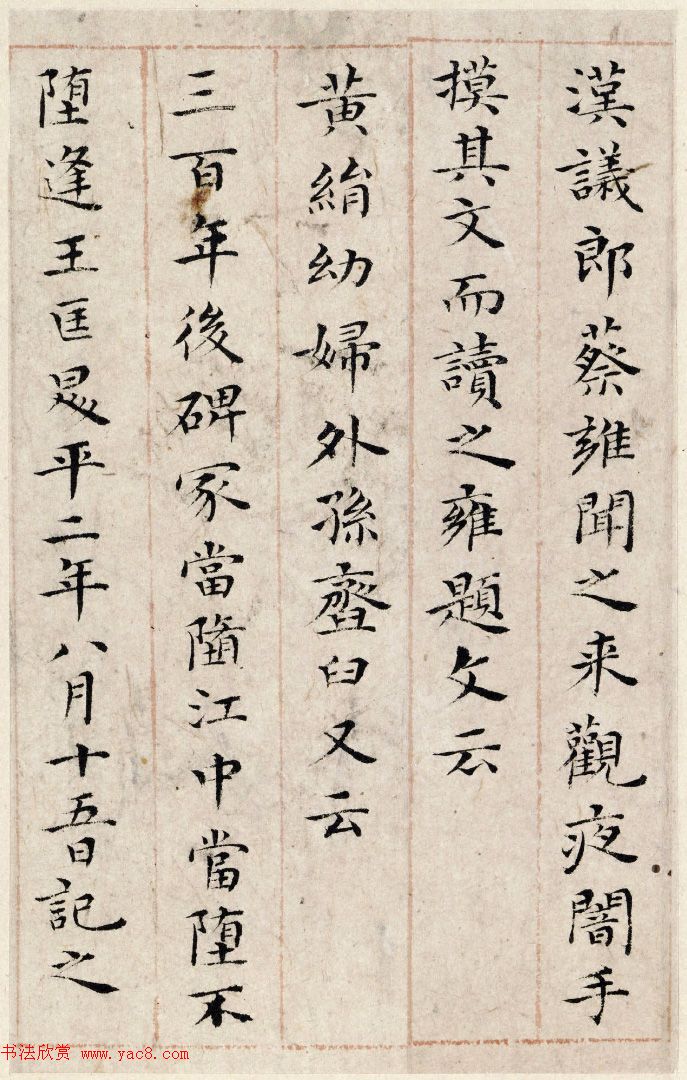 漢議郎蔡雍聞之来觀夜闇手
摸其文而讀之雍題文云
黃絹幼婦外孫齏臼又云
三百年後碑冢當墮江中當墮不
墮逢王匡旵平二年八月十五日記之
书法欣赏 www.yac8.com